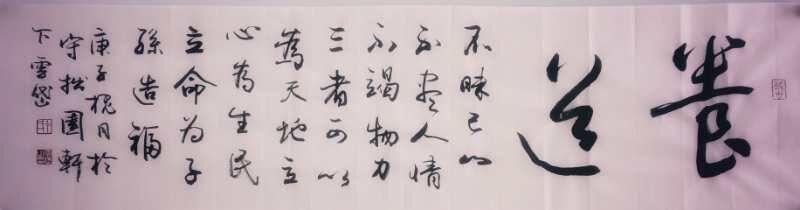 養
道
不昧己心
不盡人情
不竭物力
三者可以
為天地立
心為生民
立命为子
孫造福
庚子槐月於
守拙園軒
下雪